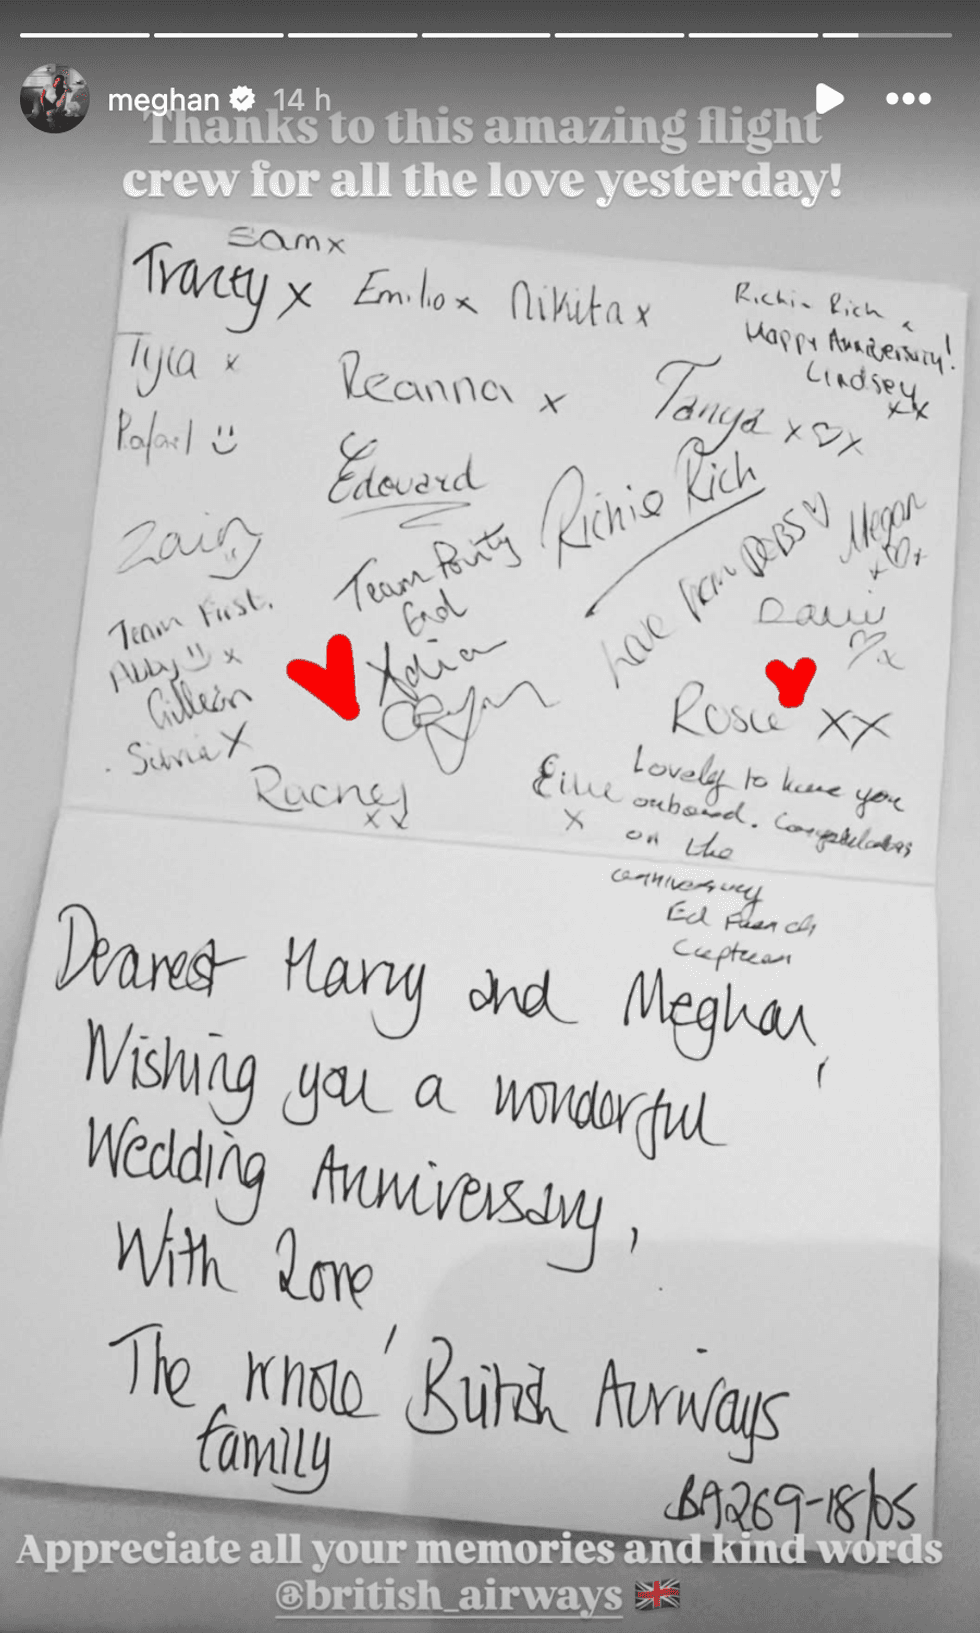 meghan 14 h
Thanks to this amazing flight
crew for all the love yesterday!
Sam x
Tracey x Emilio x Nikita x
Richie Rich x
Happy Anniversary!
Lindsey
xx
Tyla x
Reanna x
Tanya x♡x
Rafael :)
Edouard
Richie Rich
Zain
Team Pointy
End
Love from DEBS ♡
Megan
x♡x
♡x
Team First.
Abby :) x
Gillean
Silvia X
Rosie XX
Rachel
xx
Ellie
x
Lovely to have you
onboard. Congratulations
on the
anniversary
Ed French
Captain
Dearest Harry and Meghan,
Wishing you a wonderful
Wedding Anniversary,
With Love
The whole British Airways
family
BA269-18/05
Appreciate all your memories and kind words
@british_airways 🇬🇧